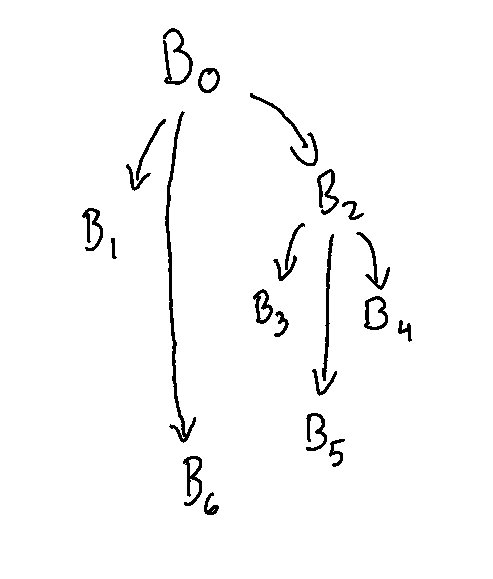 B₀
B₁
B₂
B₃
B₄
B₅
B₆